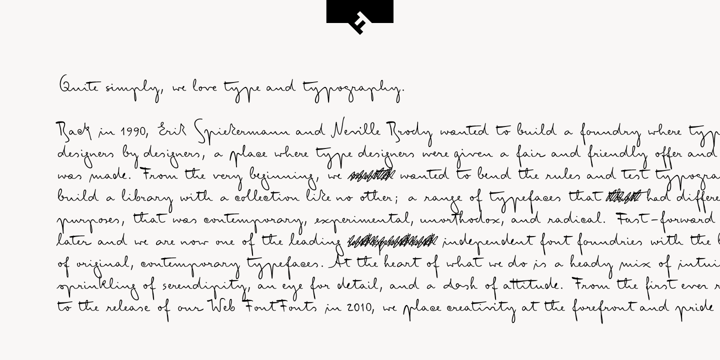 Quite simply, we love type and typography.
Back in 1990, Erik Spiekermann and Neville Brody wanted to build a foundry where
designers by designers, a place where type designers were given a fair and friendly offer and
was made. From the very beginning, we wanted to bend the rules and test
build a library with a collection like no other; a range of typefaces that had
purposes, that was contemporary, experimental, unorthodox, and radical. Fast-forward
later and we are now one of the leading independent font foundries with the
of original, contemporary typefaces. At the heart of what we do is a heady mix of
sprinkling of serendipity, an eye for detail, and a dash of attitude. From the first ever
to the release of our Web FontFonts in 2010, we place creativity at the forefront and pride